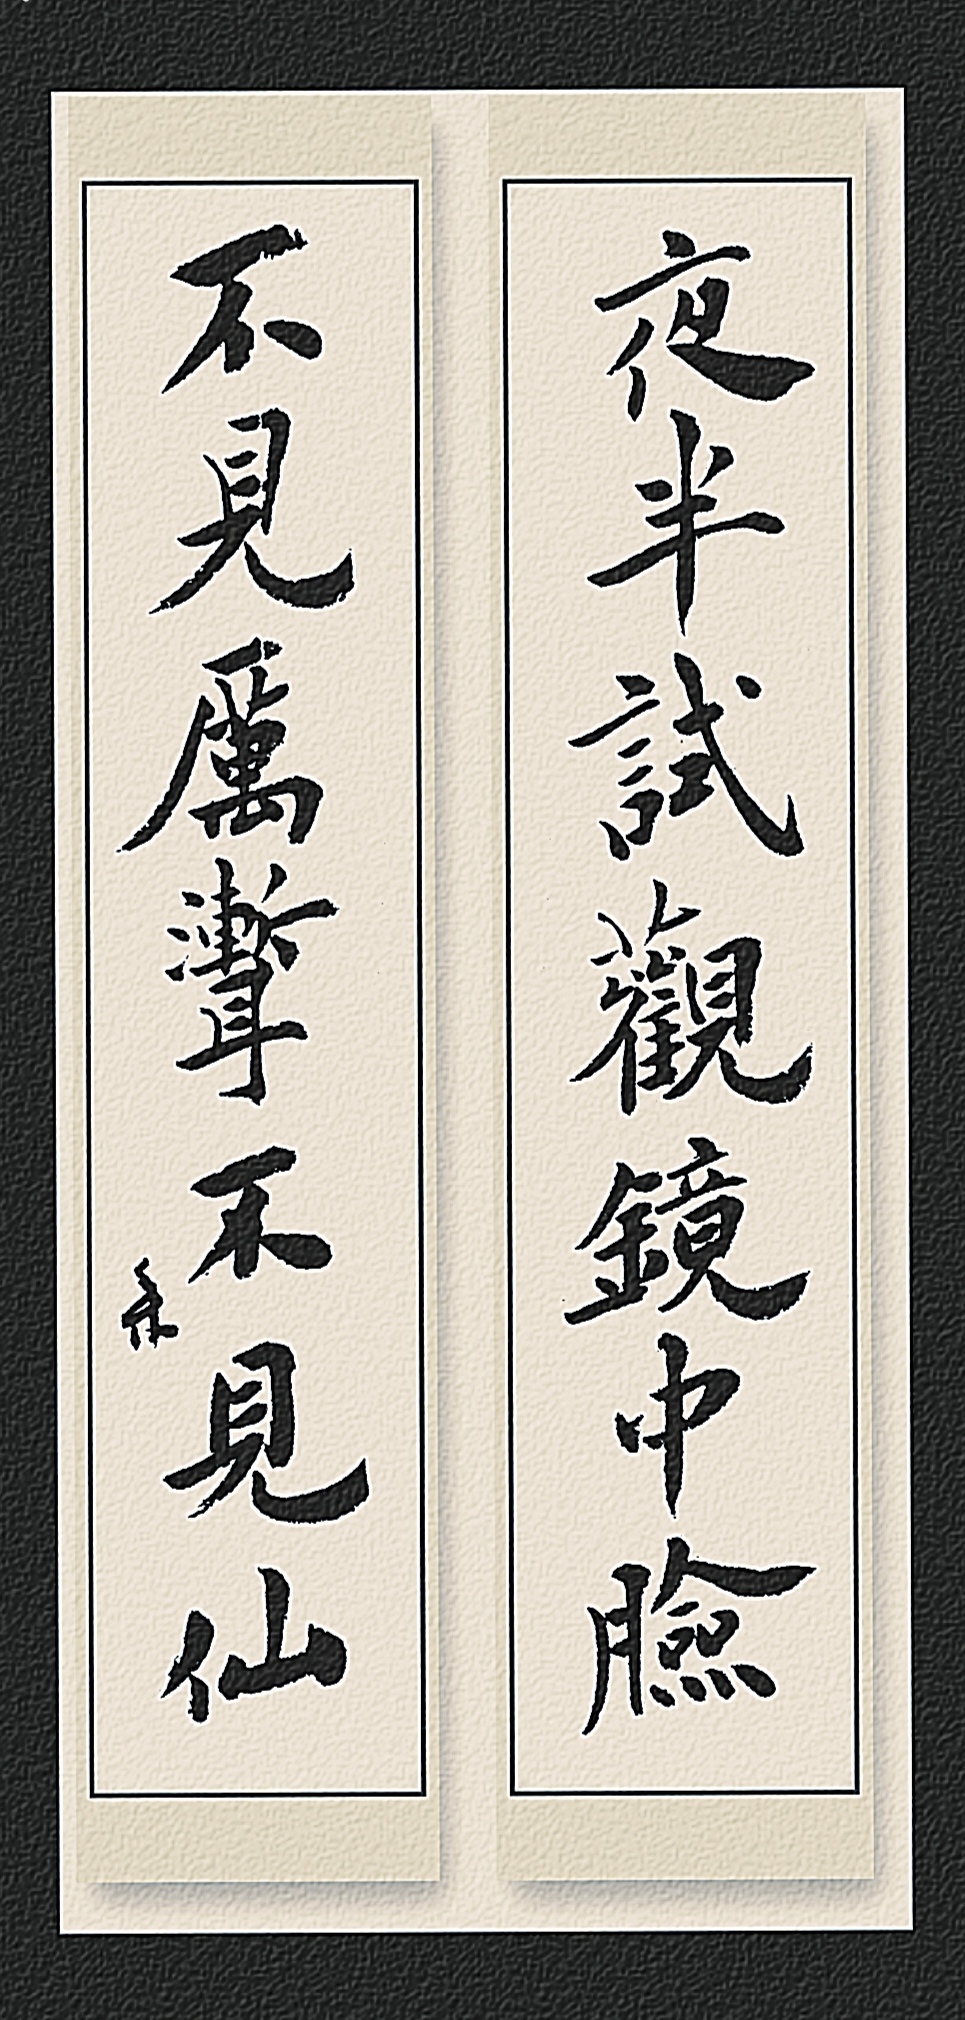 夜半試觀鏡中臉
不見厲聻不見仙